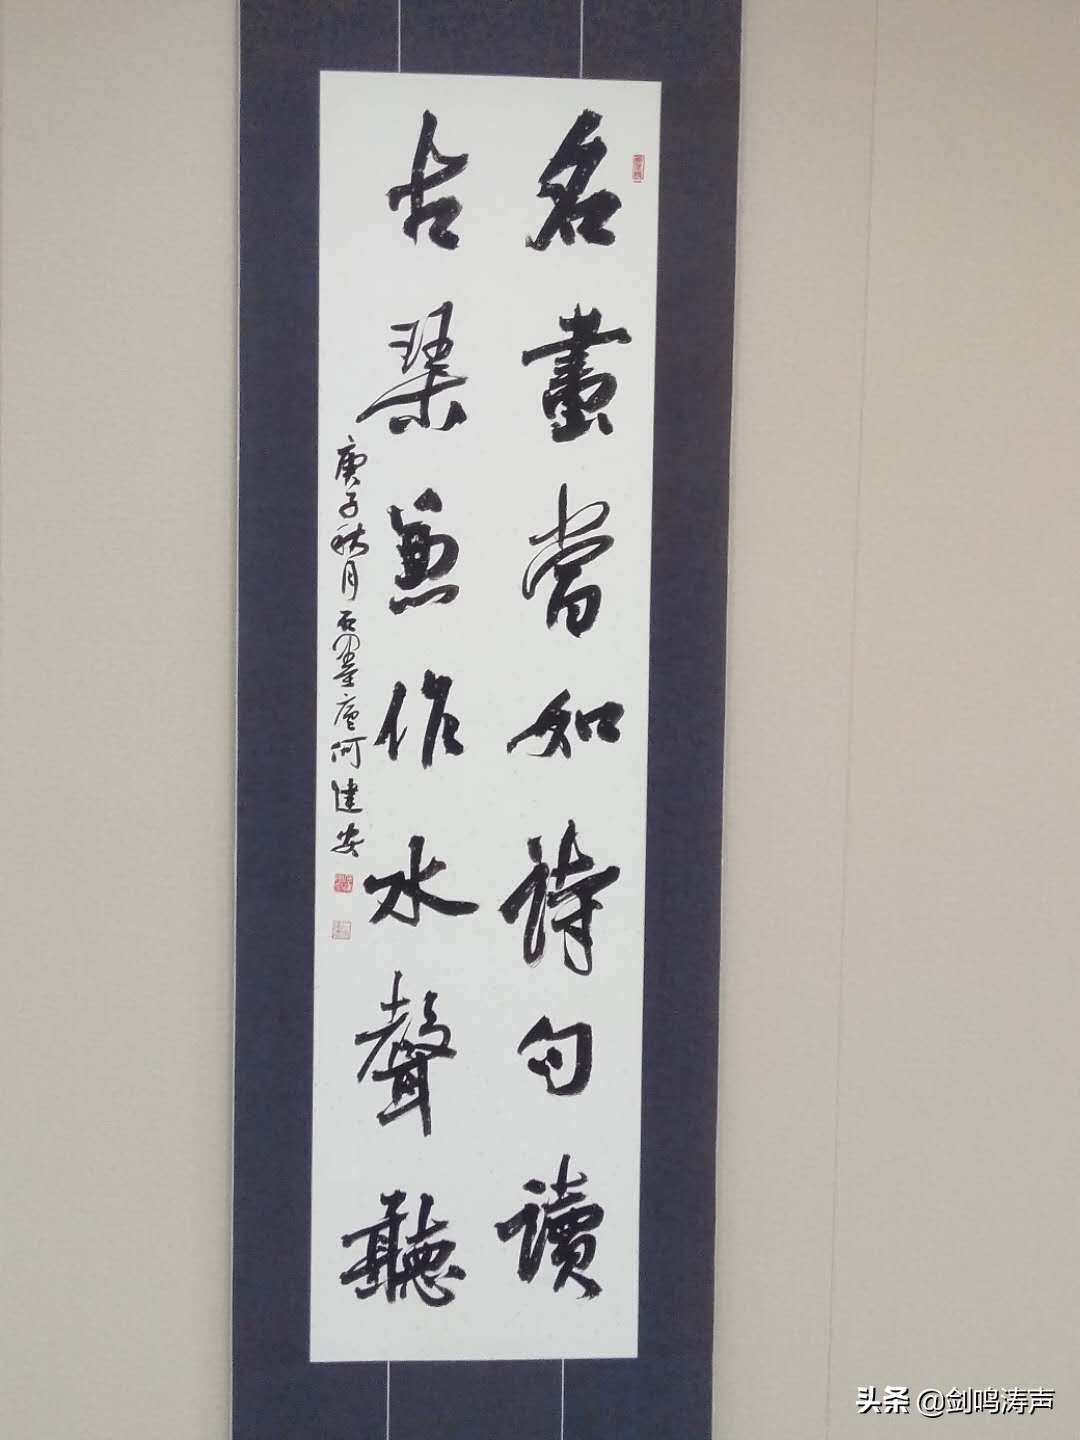 名畫當如詩句讀
古琴兼作水聲聽
庚子秋月石墨廬何建安
头条 @剑鸣涛声